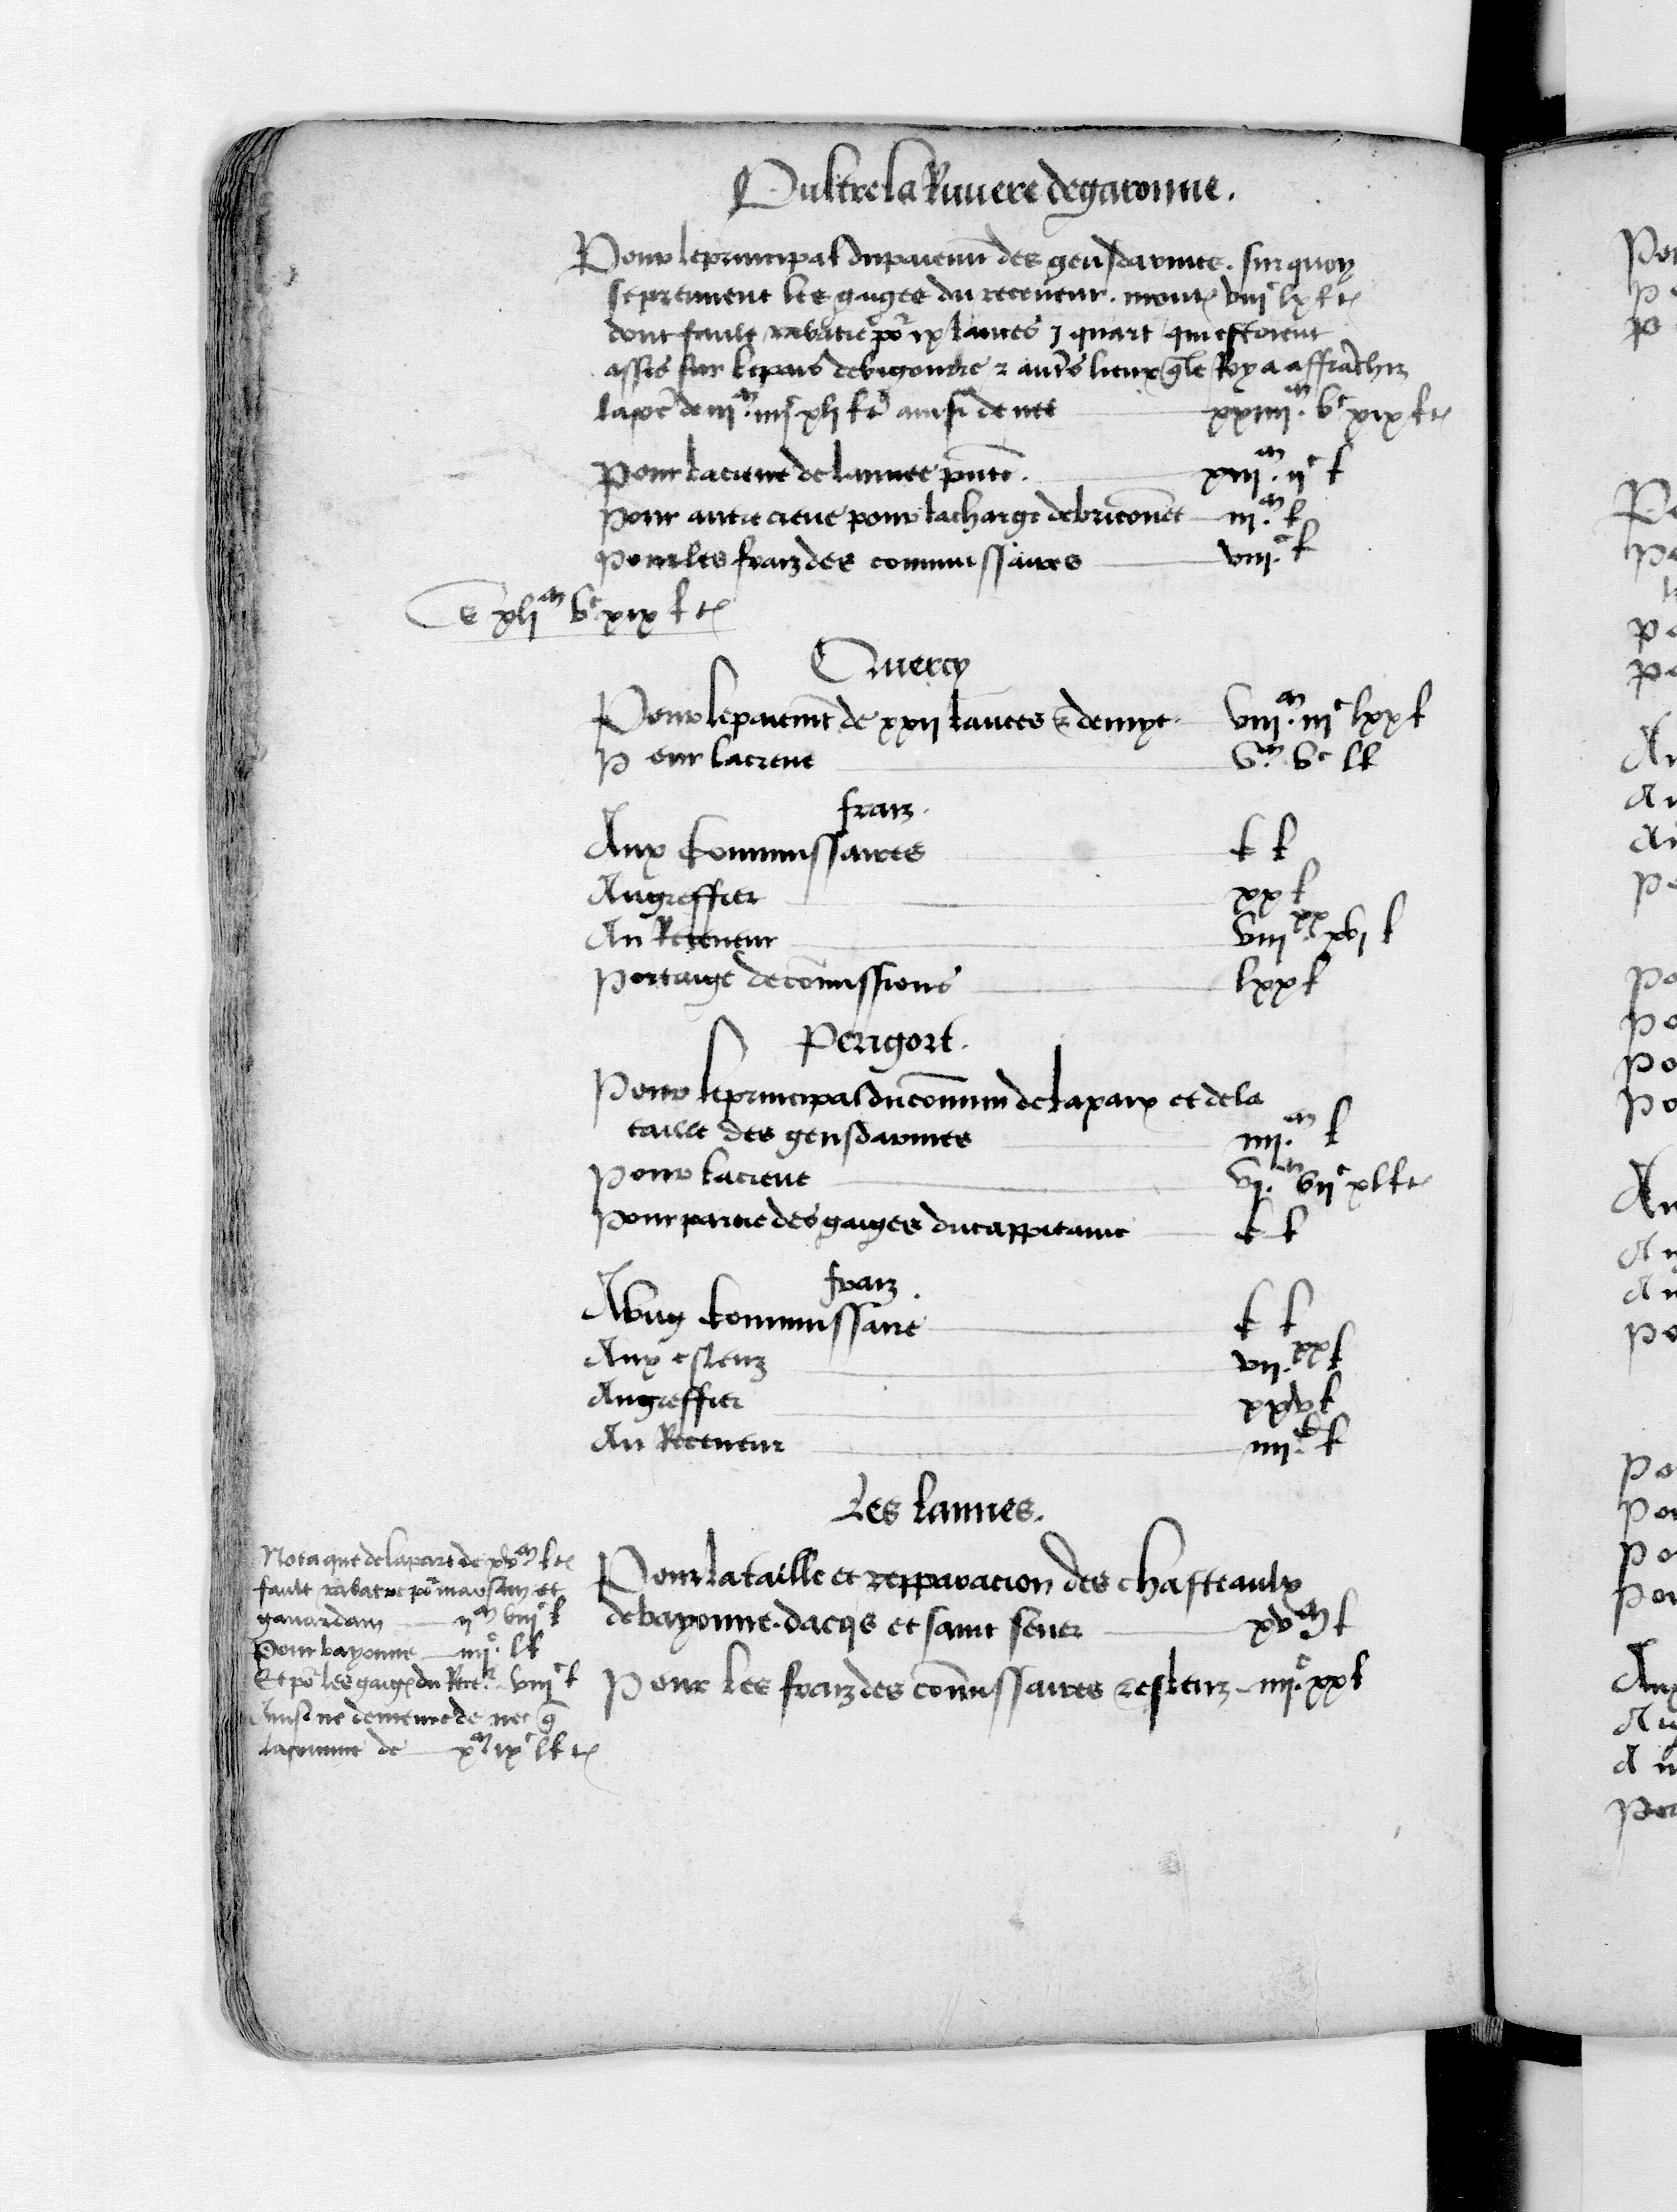 Oultre la Riviere de garonne.
Pour le principal du paiemt des gensdarmes. sur quoy
se prennent les gaiges du receveur. mont viijc lx l t
dont fault rabatre por ix lances j quart qui estoient
assis sur le pais de bigourdre & autrs lieux q le Roy a affrachiz
la soe de iijm. iiijc xlj l t ainsi de net xxiiijm. vc xix l t
pour la creue de lannee pnte. xiijm. ijc l
pour autre creue pour la charge de briconet iijm. l
pour les fraiz des commissaires viijc l
S xljm vc xix l t
Quercy
Pour le paiemt de xxij lances & demye. viijm. iijc lxx l
Pour la creue vm. vc l l
fraiz.
Aux Commissaires c l
Au greffier xx l
Au Receveur viijxx xvj l
portaige de comissions lxx l
Perigort.
Pour le principal du comun de la paix et de la
taille des gensdarmes iiijm. l
pour la creue vjm. vijc xl l t
pour partie des gaiges du cappitaine c l
fraiz.
A ung Commissaire c l
Aux esleuz vijxx l
Au greffier xxv l
Au Receveur iiijc l
Les Lannes.
Pour la taille et repparacion des chasteaulx
de bayonne. dacqs et saint sever xvm l
Pour les fraiz des comissaires & esleuz iiijc. xx l
Nota que de la part de xvm l t
fault rabatre por marsam et
gavardam ijm viijc l
Pour bayonne iiijc. l l
Et por les gaiges du Recer viijc l
Ainsi ne demeure de net q
la somme de xm ixc l l t